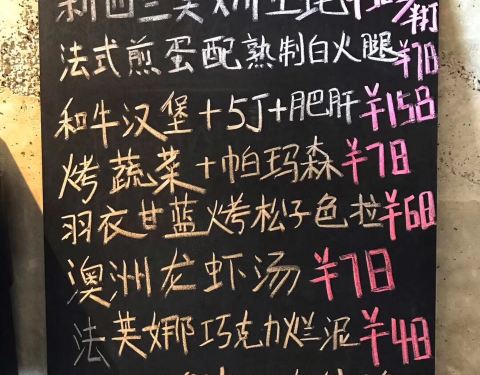 法式煎蛋配熟制白火腿¥78
和牛汉堡+5J+肥肝¥158
烤蔬菜+帕玛森¥78
羽衣甘蓝烤松子色拉¥68
澳洲龙虾汤¥78
法芙娜巧克力烂泥¥48